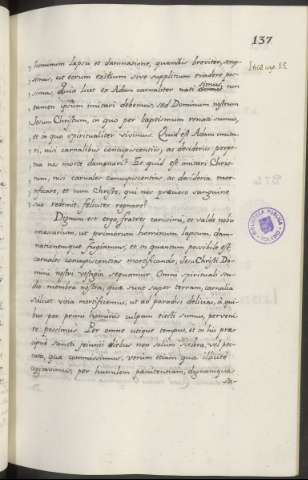 137
hominum lapsu et damnatione, quamvis breviter, tetigimus, ut eorum exitium sive supplicium evadere possimus. Quia licet ex Adam carnaliter nati simus, non
tamen ipsum imitari debemus, sed Dominum nostrum
Jesum Christum, in quo per baptismum renati sumus,
et in quo spiritualiter vivimus. Quid est Adam imitari, nisi carnalibus concupiscentiis, ac desideriis perpetua nos morte damnari? Et quid est imitari Christum, nisi carnales concupiscentias, ac desideria mortificare, et cum Christo, qui nos pretioso sanguine
suo redemit, feliciter regnare?
Dignum est ergo, fratres carissimi, et valde nobis
necessarium, ut primorum hominum lapsum, damnationemque fugiamus, et in quantum possibile est
carnales concupiscentias mortificando, Jesu Christi Domini nostri vestigia sequamur. Omni spirituali studio membra nostra, quae sunt super terram, carnalia
scilicet vitia mortificemus, ut ad paradisi delicias, a quibus per primi hominis culpam eiecti sumus, pervenire possimus. Per omne utique tempus, et in his praecipue sancti ieiunii diebus non solum scelera, vel peccata, quae commissimus, verum etiam quae illicite
cogitavimus, per humilem poenitentiam, dignamque
sa-